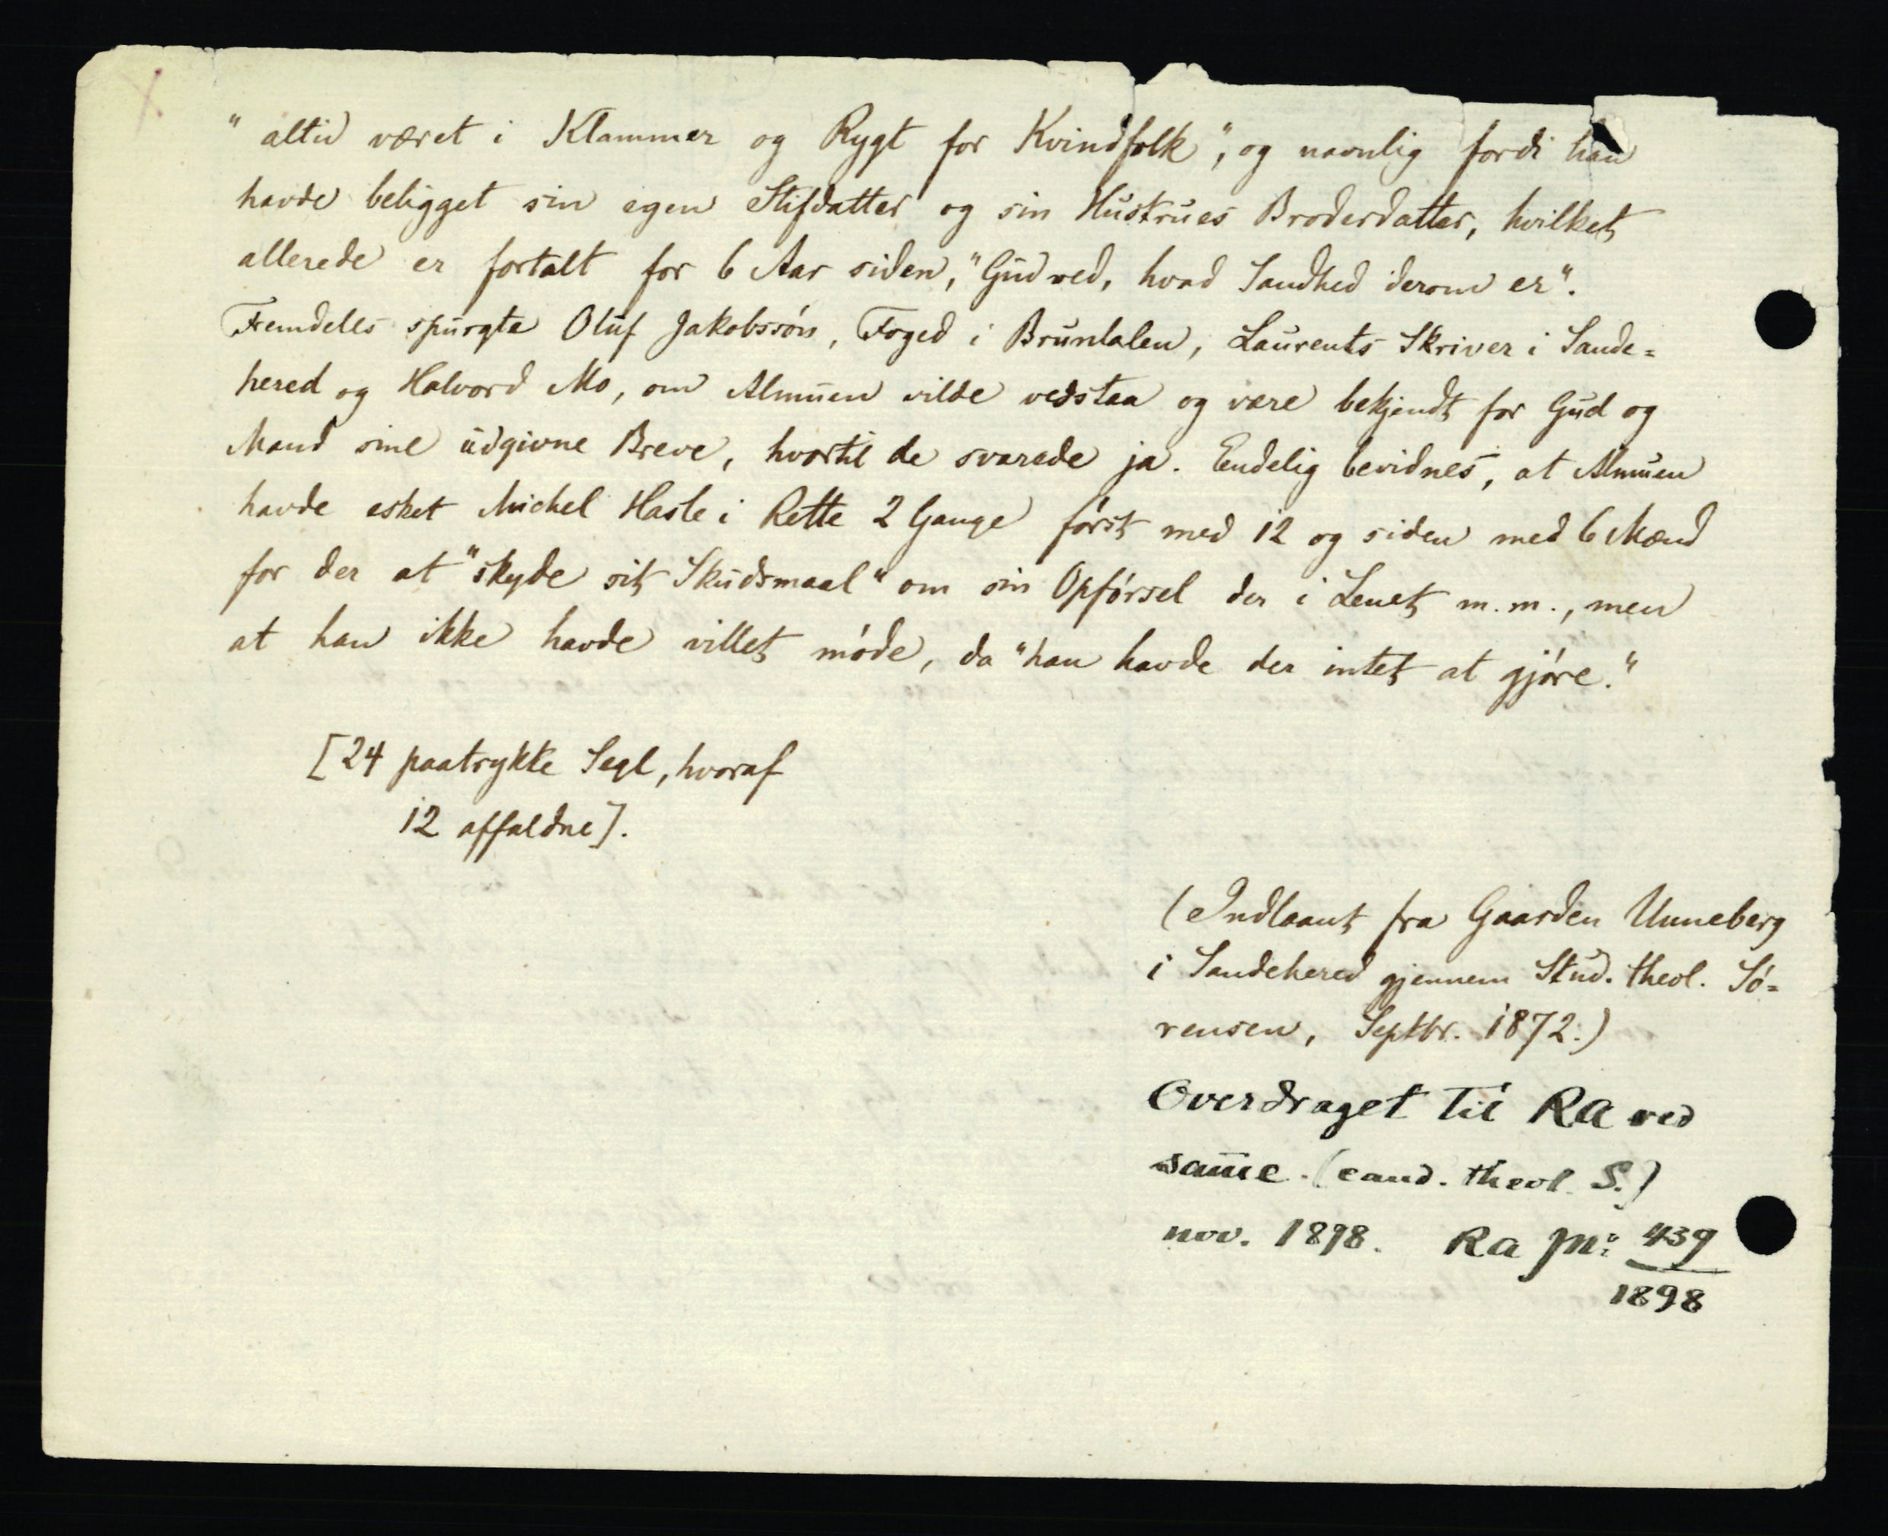 " altid været i Klammer og Rygt for Kvindfolk", og navnlig fordi han
havde beligget sin egen Stifdatter og sin Hustrues Broderdatter, hvilket
allerede er fortalt for 6 Aar siden, "Gud ved, hvad Sandhed derom er".
Fremdeles spurgte Oluf Jakobssøn, Foged i Brunlalen, Laurents Skriver i Sande=
hered og Halvord Mo, om Almuen vilde vedstaa og være bekjendt for Gud og
Mand sine udgivne Breve, hvortil de svarede ja. Endelig bevidnes, at Almuen
havde esket Michel Hasle i Rette 2 Gange først med 12 og siden med 6 Mænd
for der at "skyde sit Skudsmaal" om sin Opførsel der i Lenet m.m., men
at han ikke havde villet møde, da "han havde der intet at gjøre."
[24 paatrykte Segl, hvoraf
12 affaldne].
(Indlaant fra Gaarden Unneberg
i Sandehered gjennem Stud. theol. Sø=
rensen, Septbr. 1872.)
Overdraget til RA ved
samme. (cand. theol. S.)
nov. 1898. RA jnr: 439
1898